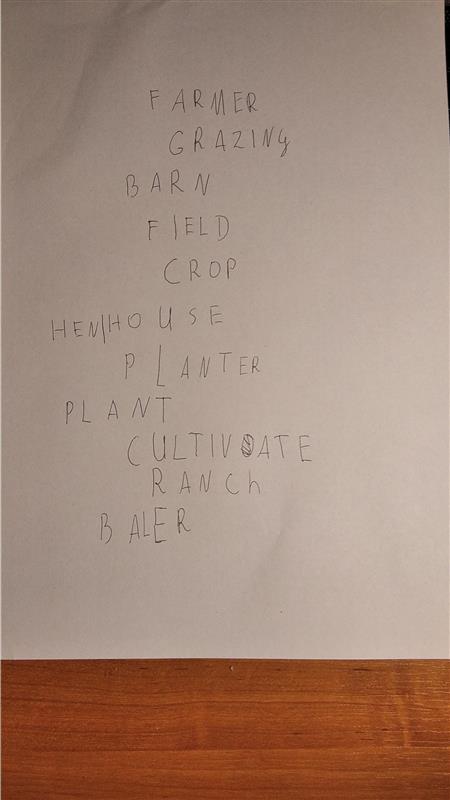 FARMER
GRAZING
BARN
FIELD
CROP
HEN/HOUSE
PLANTER
PLANT
CULTIVATE
RANCh
BALER